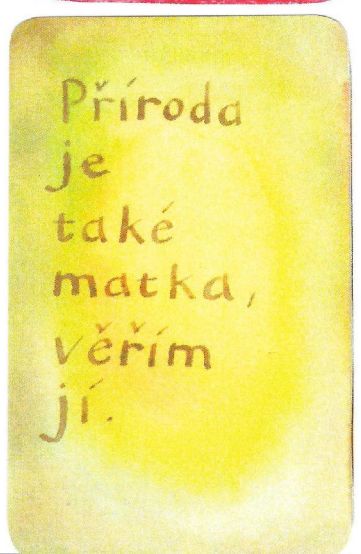 Příroda
je
také
matka,
věřím
jí.